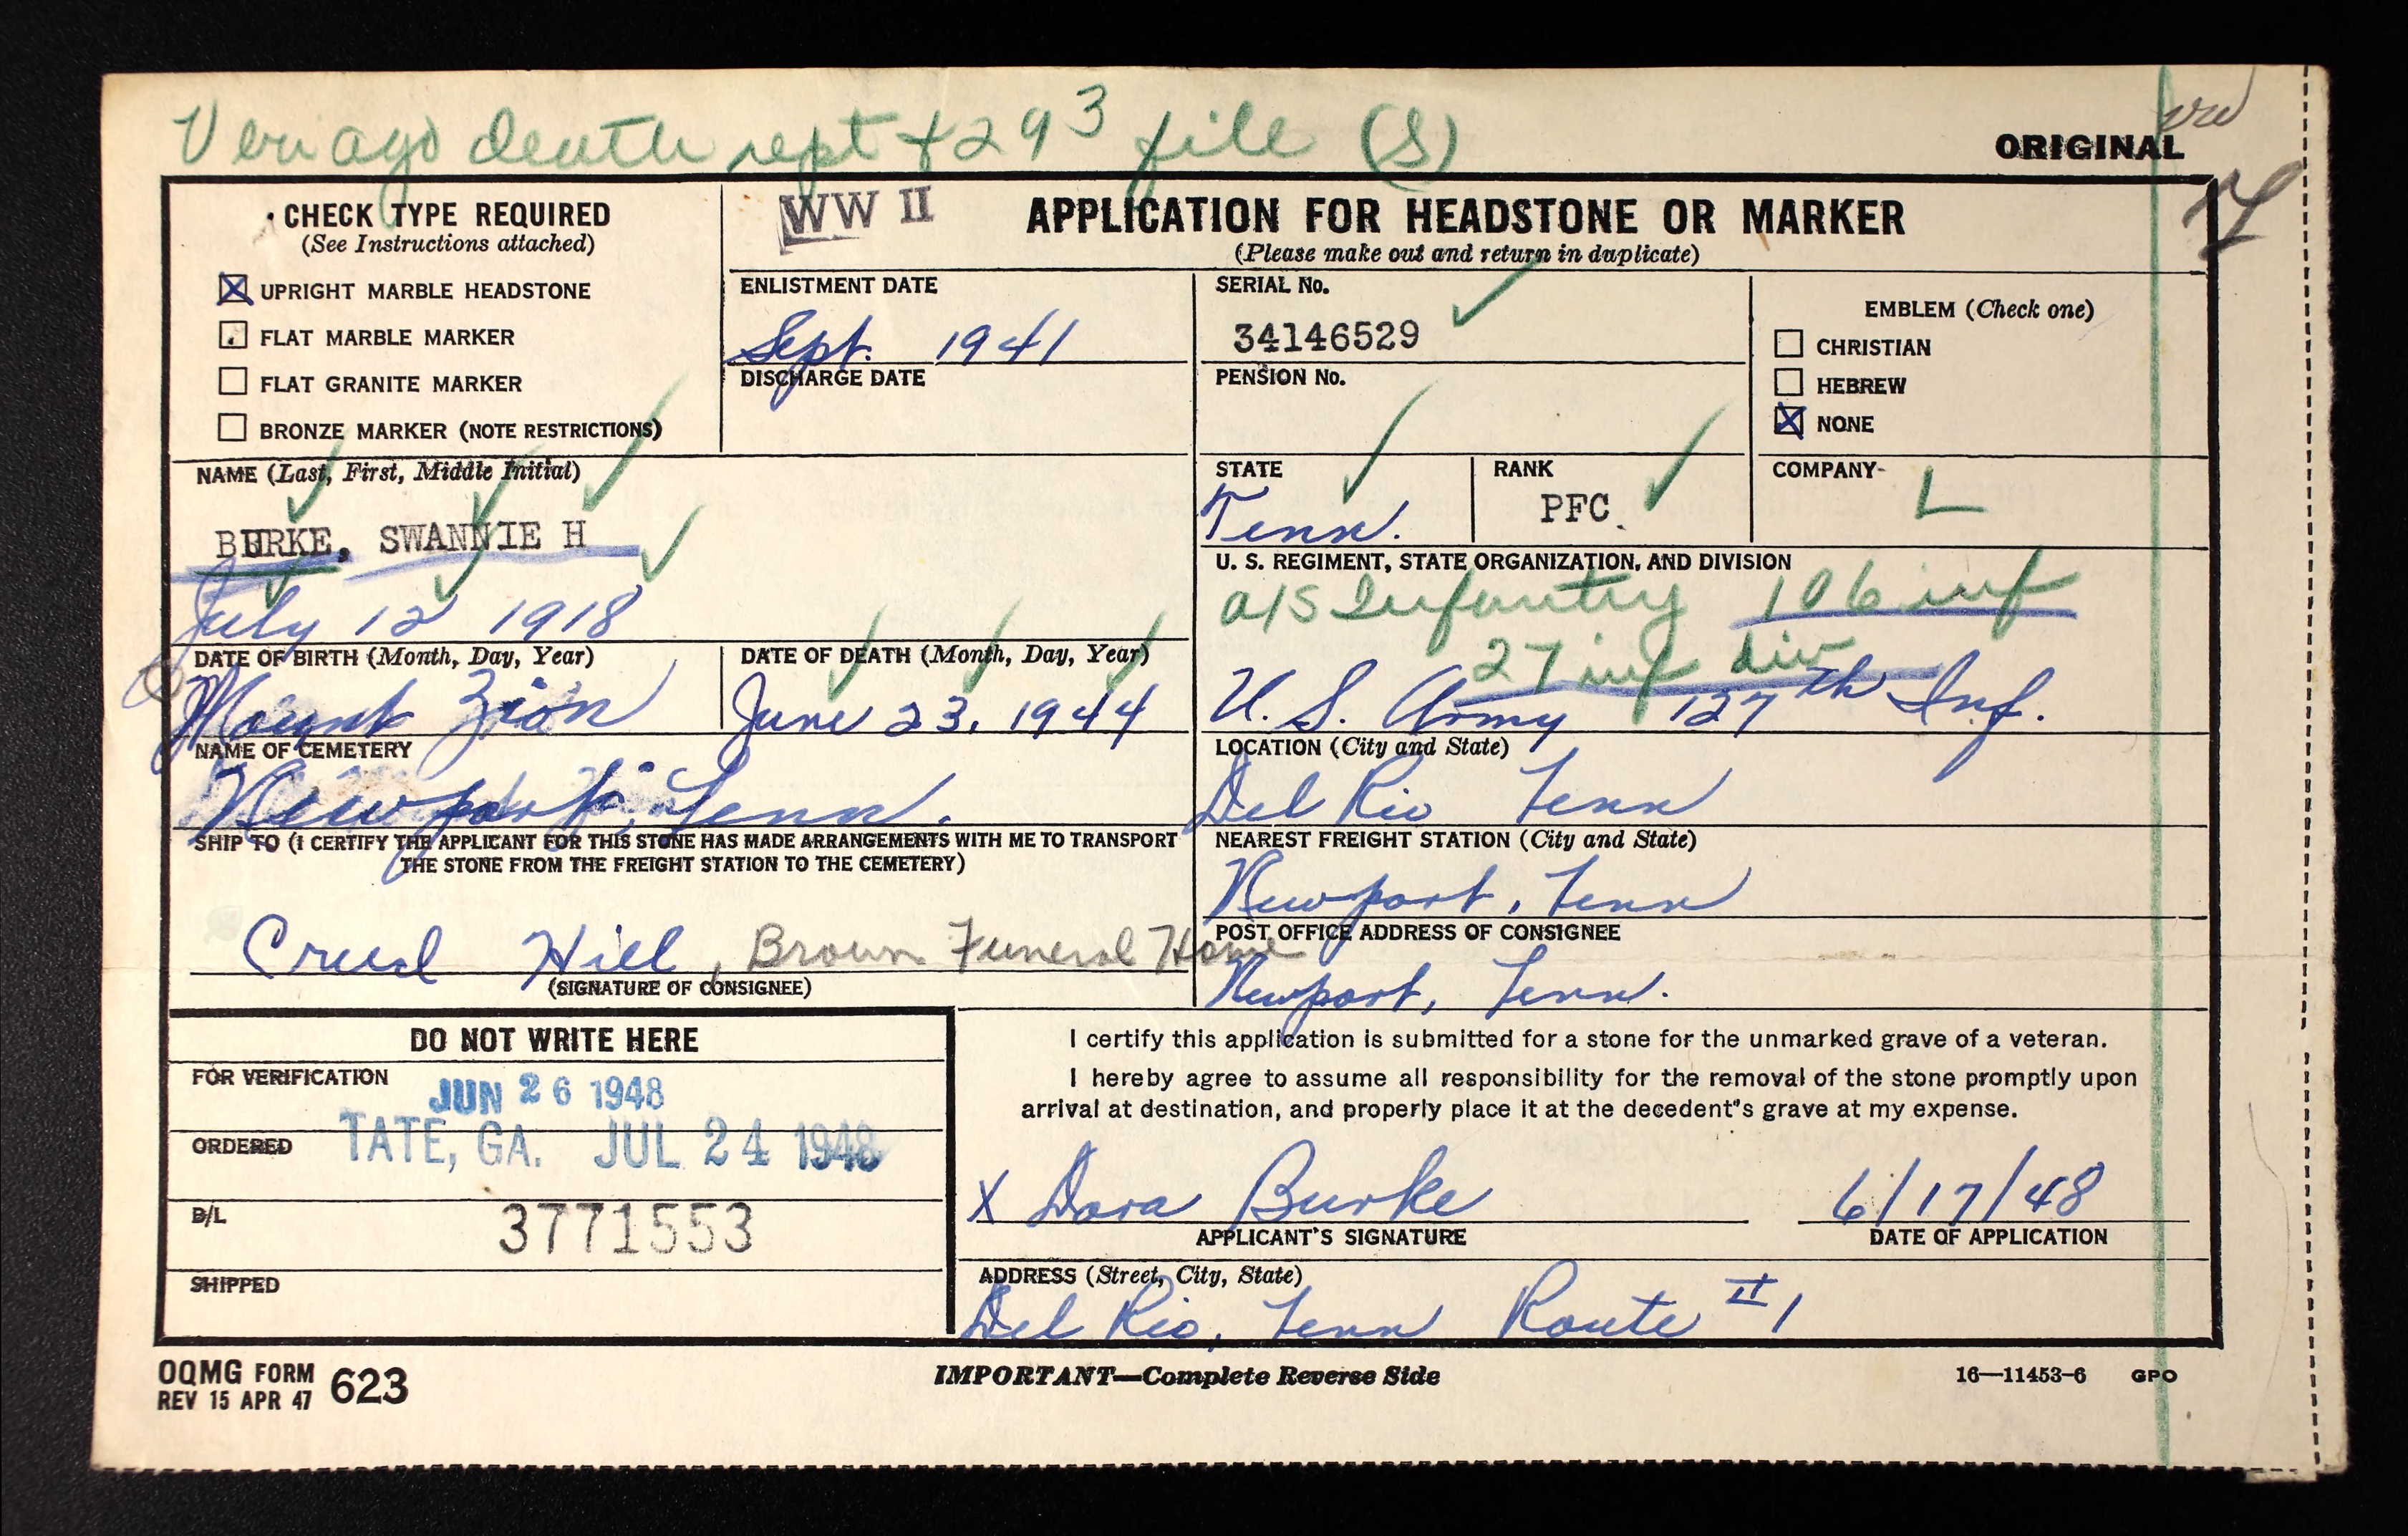 Ver ago death rept + 293 file (S)
vw
ORIGINAL
CHECK TYPE REQUIRED
(See Instructions attached)
UPRIGHT MARBLE HEADSTONE
FLAT MARBLE MARKER
FLAT GRANITE MARKER
BRONZE MARKER (NOTE RESTRICTIONS)
WW II
APPLICATION FOR HEADSTONE OR MARKER
(Please make out and return in duplicate)
ENLISTMENT DATE
Sept. 1941
DISCHARGE DATE
SERIAL No.
34146529
PENSION No.
EMBLEM (Check one)
CHRISTIAN
HEBREW
NONE
NAME (Last, First, Middle Initial)
BURKE, SWANNIE H
July 12 1918
STATE
Tenn.
RANK
PFC.
COMPANY
L
U. S. REGIMENT, STATE ORGANIZATION, AND DIVISION
a/s Infantry 106 inf
27 inf div
U. S. Army 127th Inf.
DATE OF BIRTH (Month, Day, Year)
DATE OF DEATH (Month, Day, Year)
Mount Zion
June 23, 1944
NAME OF CEMETERY
LOCATION (City and State)
Newport, Tenn.
Del Rio Tenn
SHIP TO (I CERTIFY THE APPLICANT FOR THIS STONE HAS MADE ARRANGEMENTS WITH ME TO TRANSPORT
THE STONE FROM THE FREIGHT STATION TO THE CEMETERY)
NEAREST FREIGHT STATION (City and State)
Newport, Tenn
Hill, Brown Funeral Home
(SIGNATURE OF CONSIGNEE)
POST OFFICE ADDRESS OF CONSIGNEE
Newport, Tenn.
DO NOT WRITE HERE
FOR VERIFICATION
JUN 26 1948
ORDERED
TATE, GA. JUL 24 1948
B/L
3771553
SHIPPED
I certify this application is submitted for a stone for the unmarked grave of a veteran.
I hereby agree to assume all responsibility for the removal of the stone promptly upon
arrival at destination, and properly place it at the decedent's grave at my expense.
X Dora Burke
6/17/48
APPLICANT'S SIGNATURE
DATE OF APPLICATION
ADDRESS (Street, City, State)
Del Rio, Tenn Route #1
OQMG FORM 623
REV 15 APR 47
IMPORTANT—Complete Reverse Side
16—11453-6 GPO